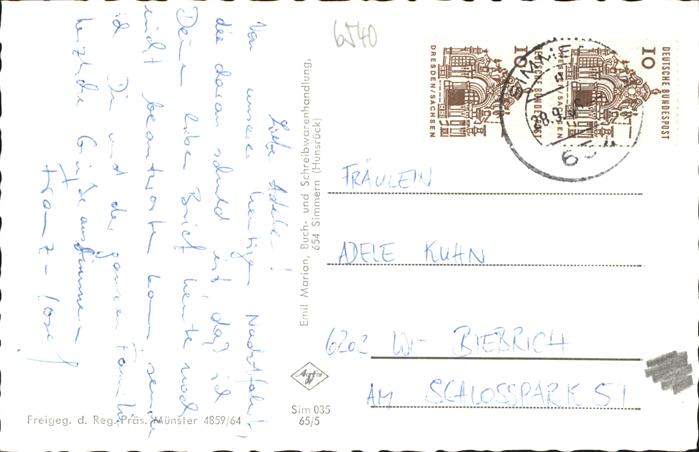 6540
Liebe Adele!
Von unserer heutigen Nachtfahrt,
die daran schuld ist, daß ich
Deinen lieben Brief heute noch
nicht beantworten kann, sende
ich Dir und der ganzen Familie
herzliche Grüße aus Simmern
Franz-Josef
Emil Marian, Buch- und Schreibwarenhandlung,
654 Simmern (Hunsrück)
DEUTSCHE BUNDESPOST
10
DRESDEN/SACHSEN
DEUTSCHE BUNDESPOST
10
DRESDEN/SACHSEN
FRÄULEIN
ADELE KUHN
6202 WI- BIEBRICH
AM SCHLOSSPARK 51
Agfa
Sim 035
65/5
Freigeg. d. Reg. Präs. Münster 4859/64